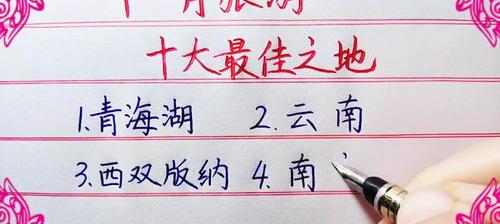 十大最佳之地
1.青海湖 2.云南
3.西双版纳 4.南